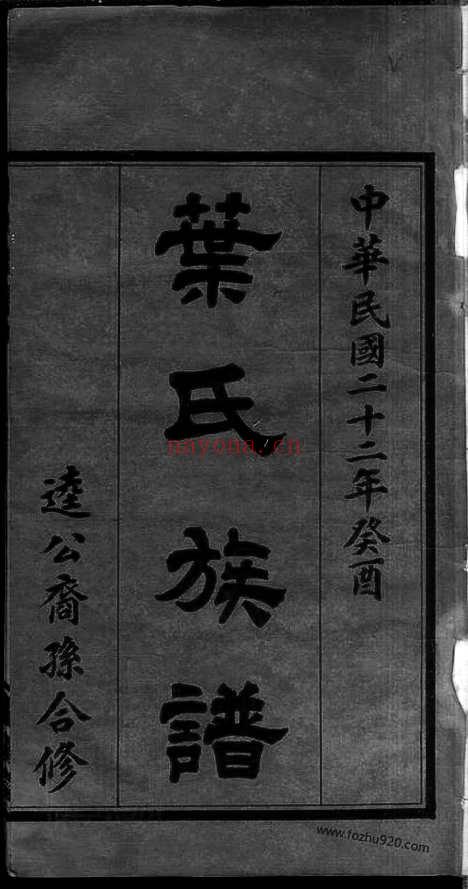 中華民國二十二年癸酉
葉氏族譜
逵公裔孫合修
nayona.cn
www.fozhu920.com